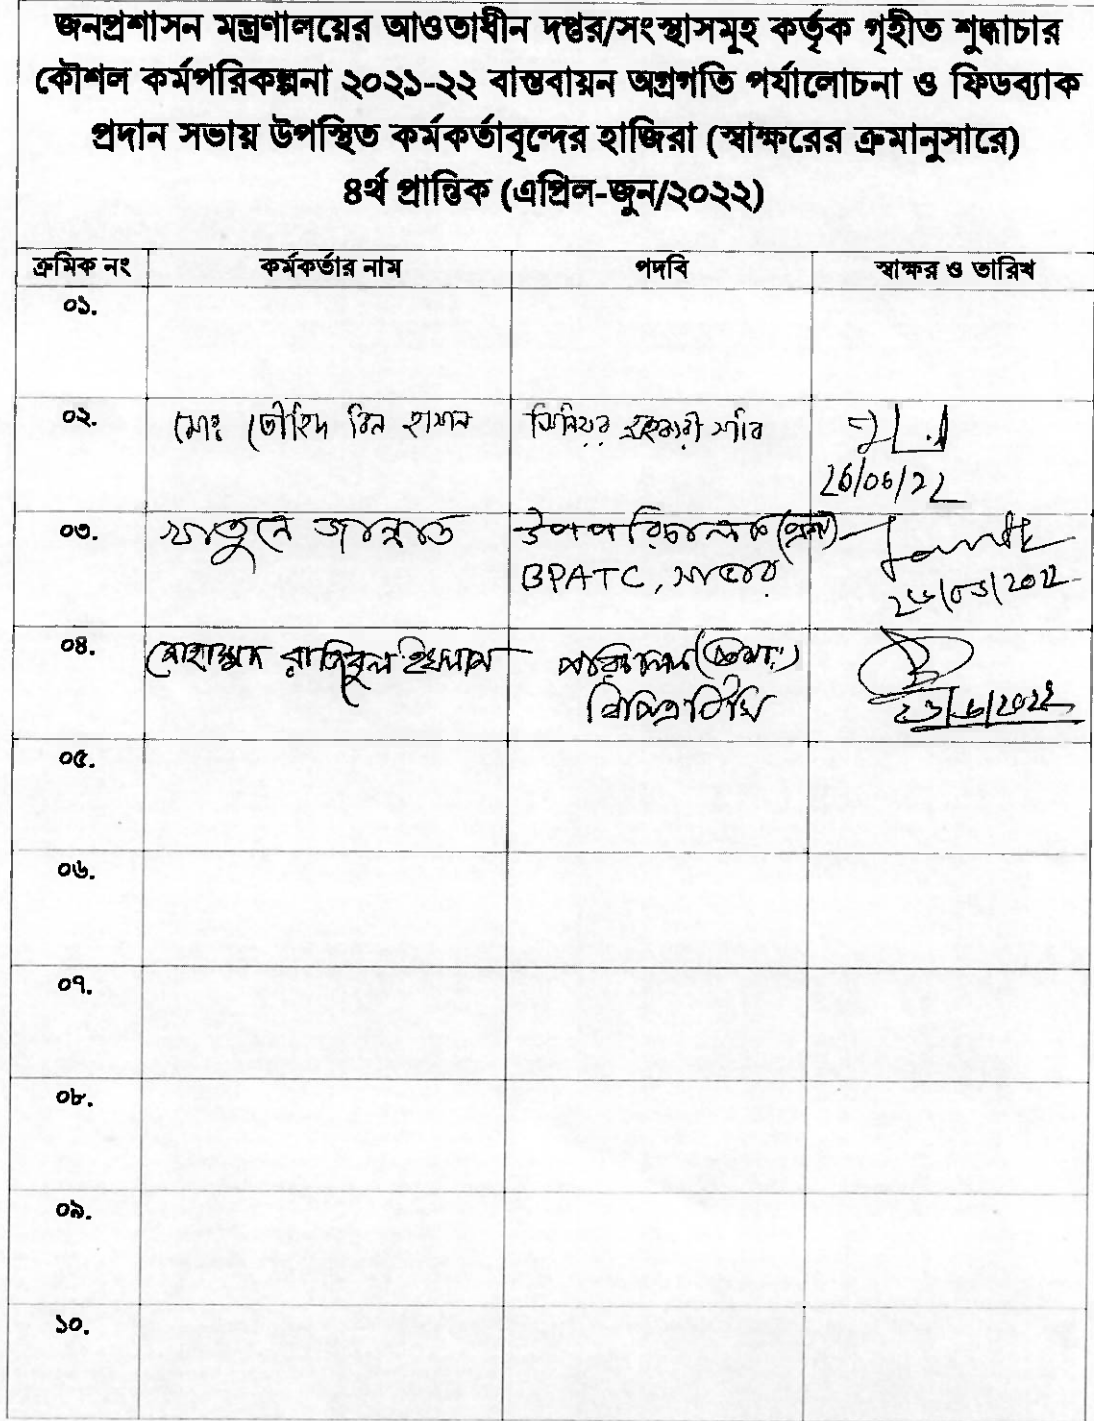 জনপ্রশাসন মন্ত্রণালয়ের আওতাধীন দপ্তর/সংস্থাসমূহ কর্তৃক গৃহীত শুদ্ধাচার
কৌশল কর্মপরিকল্পনা ২০২১-২২ বাস্তবায়ন অগ্রগতি পর্যালোচনা ও ফিডব্যাক
প্রদান সভায় উপস্থিত কর্মকর্তাবৃন্দের হাজিরা (স্বাক্ষরের ক্রমানুসারে)
৪র্থ প্রান্তিক (এপ্রিল-জুন/২০২২)
ক্রমিক নং কর্মকর্তার নাম পদবি স্বাক্ষর ও তারিখ
০১.
০২. মোঃ তৌহিদ বিন হাসান সিনিয়র সহকারী সচিব
26/06/22
০৩. খাতুনে জান্নাত উপপরিচালক
BPATC, সাভার
০৪. মোহাম্মদ রাজিবুল ইসলাম পরিচালক
০৫.
০৬.
০৭.
০৮.
০৯.
১০.